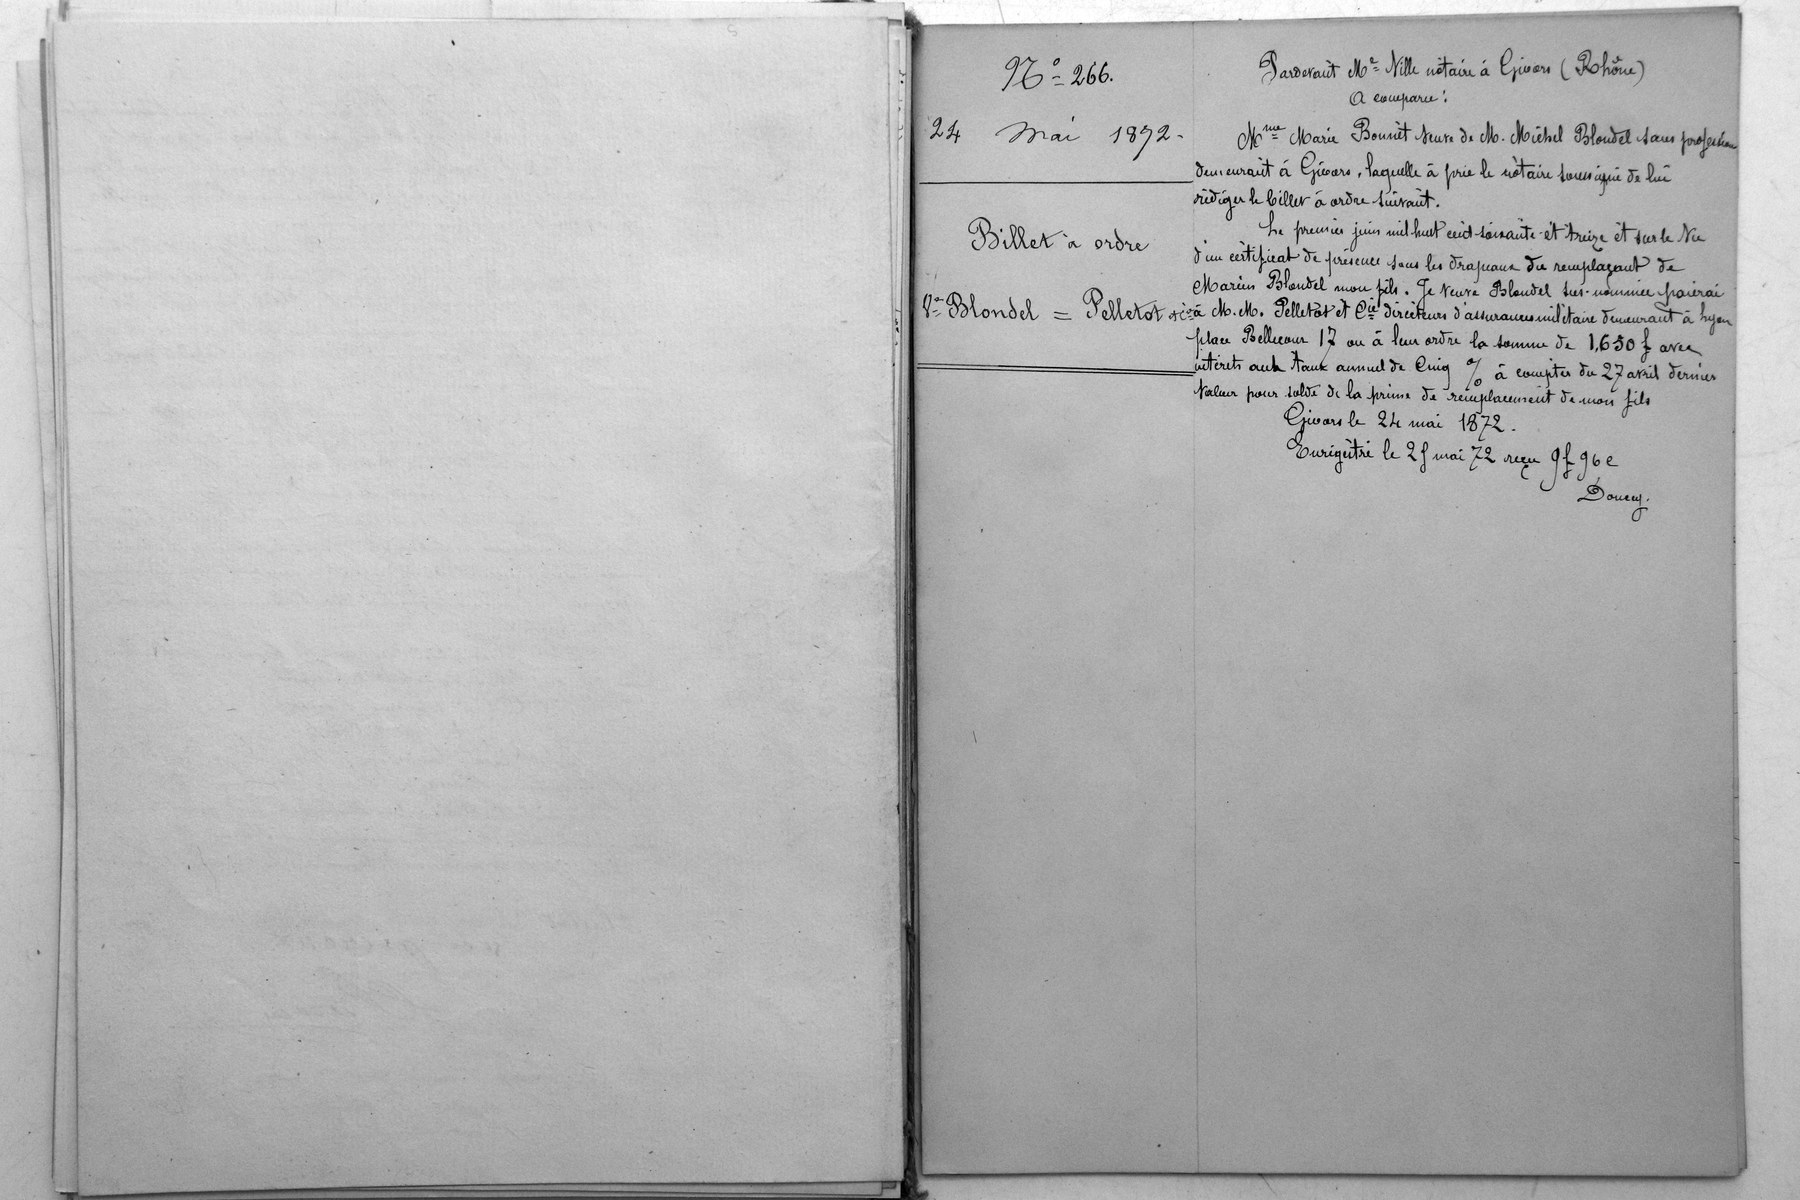 N° 266.
24 Mai 1872.
Billet à ordre
Ve Blondel = Pelletot et Cie
Pardevant Me Nille notaire à Givors (Rhône)
A comparu :
Mme Marie Bonnet veuve de M. Michel Blondel sans profession
demeurant à Givors, laquelle à prié le notaire soussigné de lui
rédiger le billet à ordre suivant.
Le premier juin mil huit cent soixante et treize et sur le vu
d'un certificat de présence sous les drapeaux du remplaçant de
Marius Blondel mon fils. Je veuve Blondel sus-nommée paierai
à M.M. Pelletot et Cie directeurs d'assurances militaire demeurant à Lyon
place Bellecour 17 ou à leur ordre la somme de 1,650 f avec
intérêts aux taux annuel de Cinq % à compter du 27 avril dernier
valeur pour solde de la prime de remplacement de mon fils
Givors le 24 mai 1872.
Enrigistré le mai 72 reçu 9f 96c